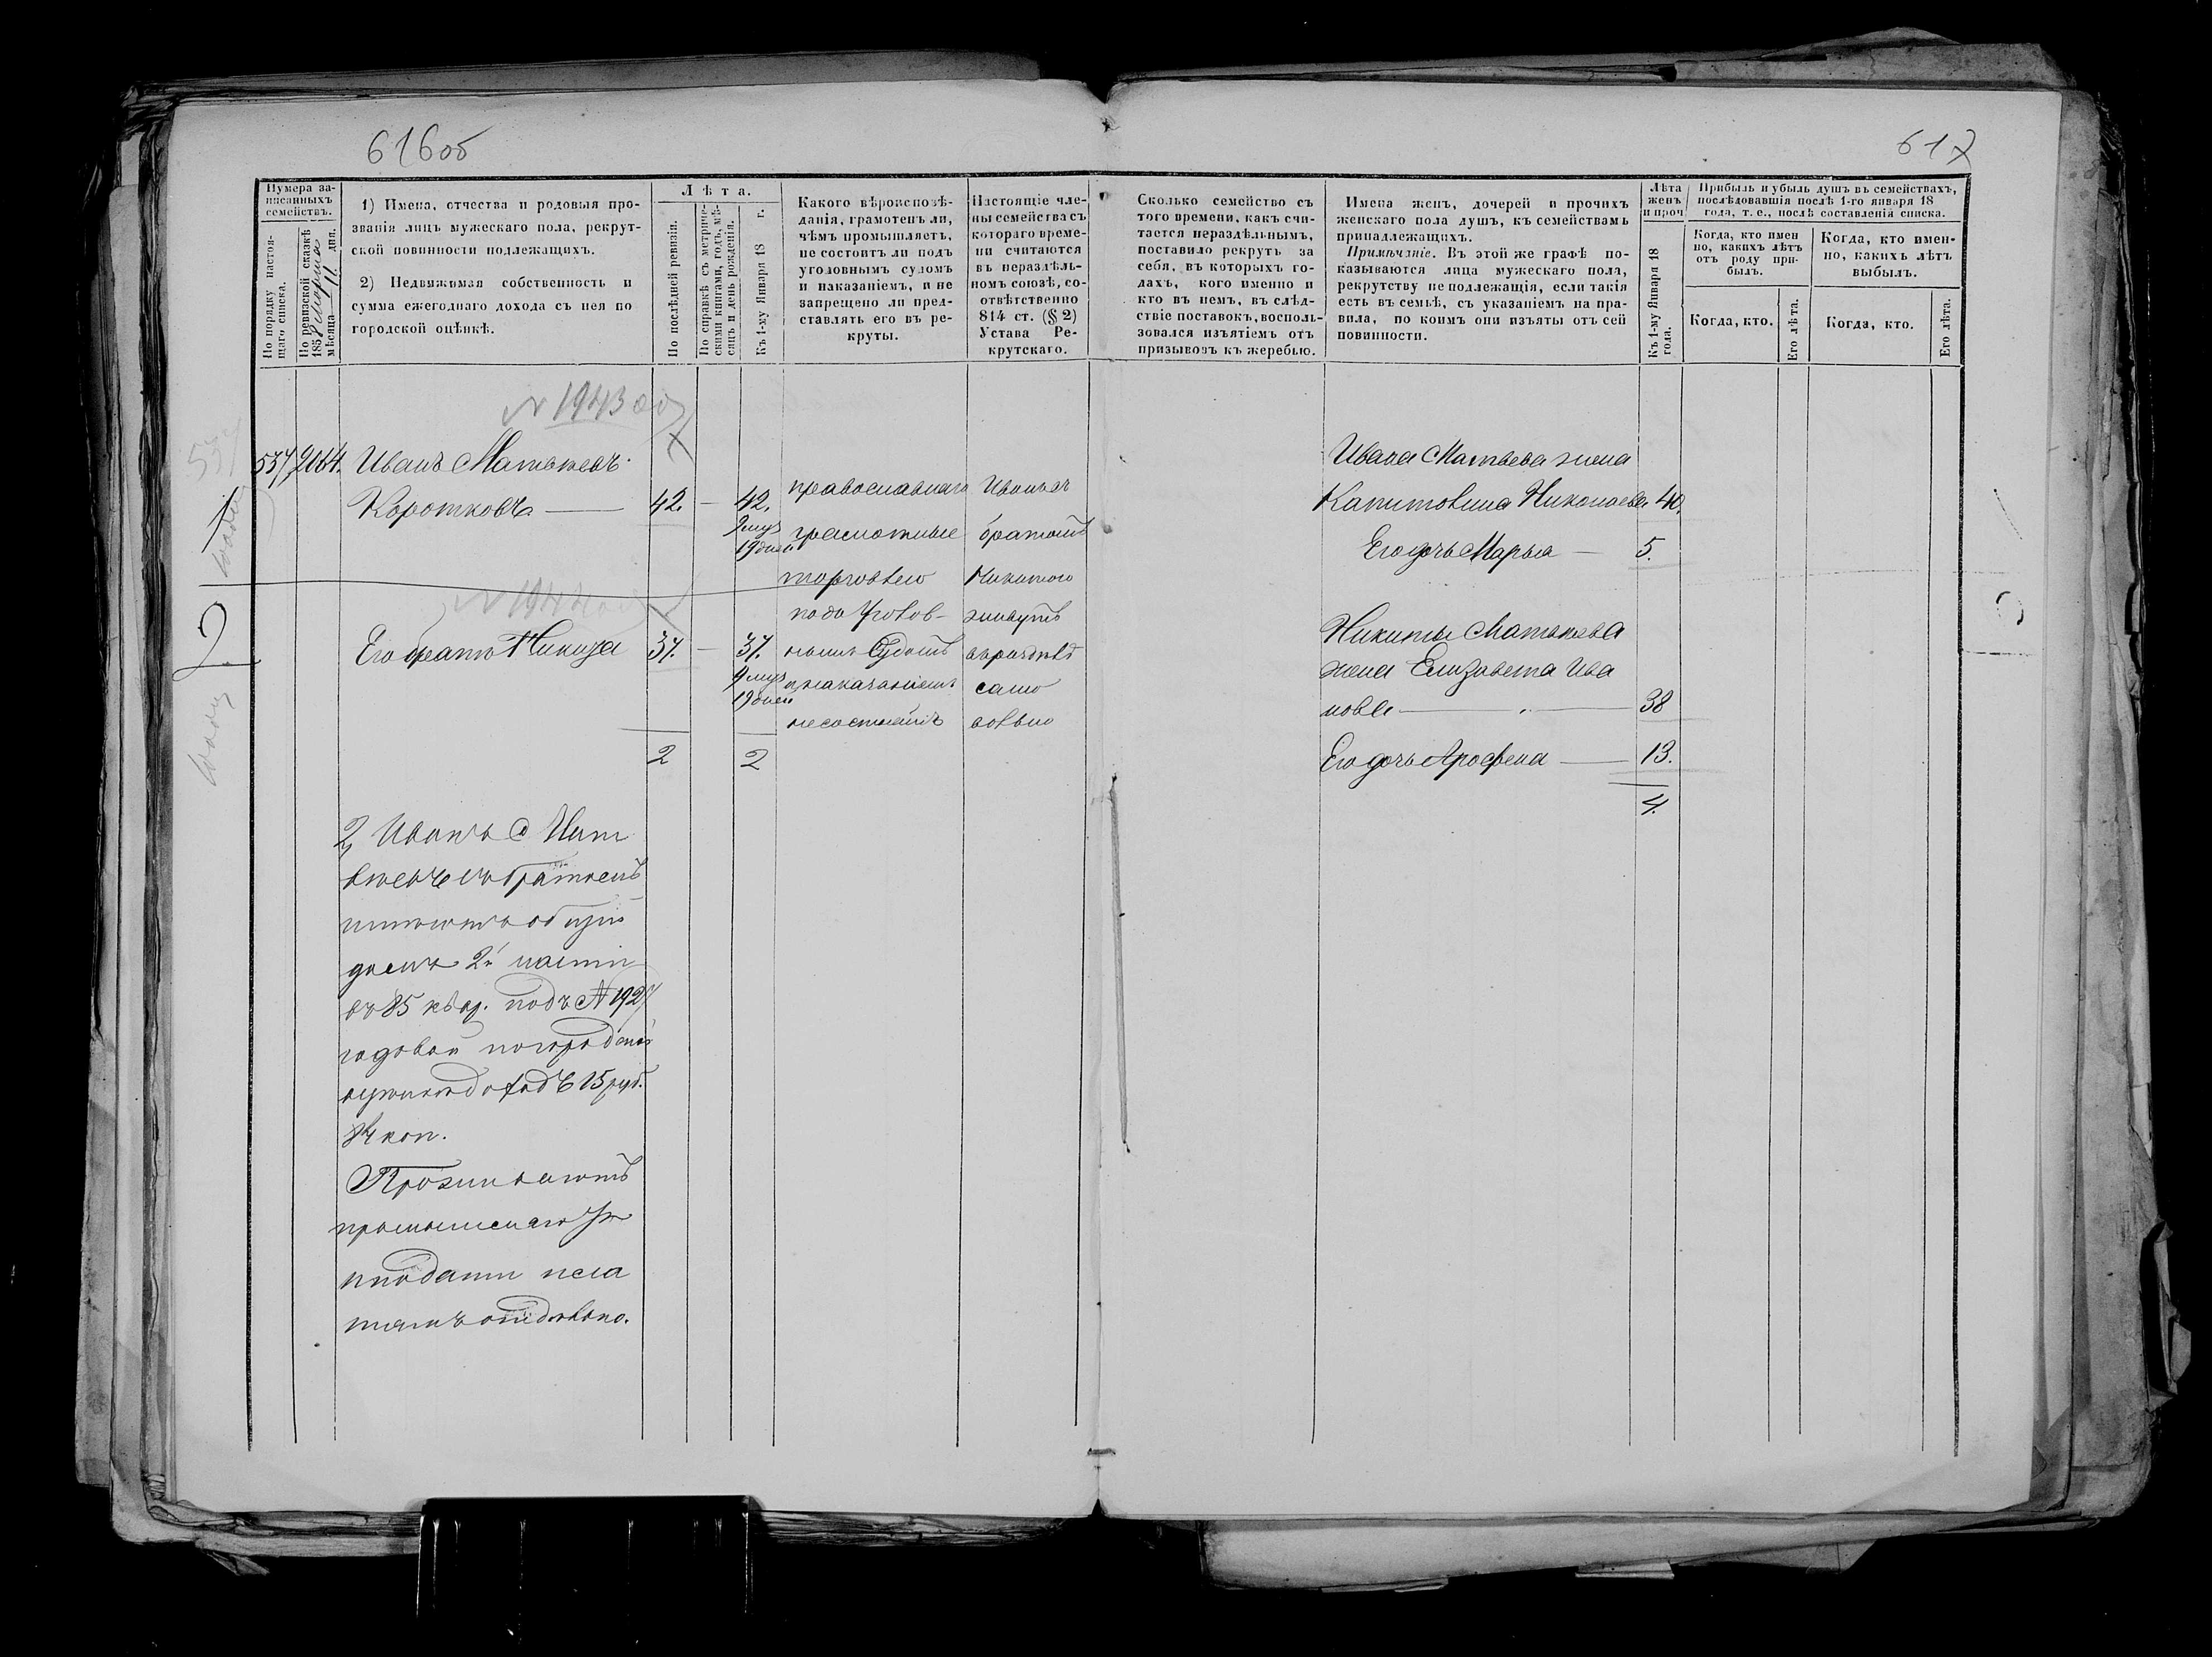 616об
617
Нумера за-
писанныхъ
семействъ.
По порядку настоя-
щаго списка.
По ревизской сказкѣ
1858 Марта
мѣсяца 11 дня.
1) Имена, отчества и родовыя про-
званія лицъ мужескаго пола, рекрут-
ской повинности подлежащихъ.
2) Недвижимая собственность и
сумма ежегоднаго дохода съ нея по
городской оцѣнкѣ.
Лѣта.
По послѣдней ревизіи.
По справкѣ съ метриче-
скими книгами, годъ, мѣ-
сяцъ и день рожденія.
Къ 1-му Января 18 г.
Какого вѣроисповѣ-
данія, грамотенъ ли,
чѣмъ промышляетъ,
не состоитъ ли подъ
уголовнымъ судомъ
и наказаніемъ, и не
запрещено ли пред-
ставлять его въ ре-
круты.
Настоящіе чле-
ны семейства съ
котораго време-
ни считаются
въ нераздѣль-
номъ союзѣ, со-
отвѣтственно
814 ст. (§ 2)
Устава Ре-
крутскаго.
Сколько семейство съ
того времени, какъ счи-
тается нераздѣльнымъ,
поставило рекрутъ за
себя, въ которыхъ го-
дахъ, кого именно и
кто въ немъ, въ слѣд-
ствіе поставокъ, восполь-
зовался изъятіемъ отъ
призывовъ къ жеребью.
Имена женъ, дочерей и прочихъ
женскаго пола душъ, къ семействамъ
принадлежащихъ.
Примѣчаніе. Въ этой же графѣ по-
казываются лица мужескаго пола,
рекрутству не подлежащія, если такія
есть въ семьѣ, съ указаніемъ на пра-
вила, по коимъ они изъяты отъ сей
повинности.
Лѣта
женъ
и проч
Къ 1-му Января 18
года.
Прибыль и убыль душъ въ семействахъ,
послѣдовавшія послѣ 1-го января 18
года, т. е., послѣ составленія списка.
Когда, кто имен
но, какихъ лѣтъ
отъ роду при-
былъ.
Когда, кто.
Его лѣта.
Когда, кто имен-
но, какихъ лѣтъ
выбылъ.
Когда, кто.
Его лѣта.
№ 1943
537 Иванъ Матвѣевъ
Коротковъ — 42. — 42.
9 мцъ
19 дней
№ 1944
Его братъ Никита 37. — 37.
9 мцъ
19 дней
2 2
православнаго
грамотные
торговлею
подъ Уголов-
нымъ Судомъ
и наказаніемъ
несостоятъ
Иванъ съ
братомъ
Никитою
живутъ
нераздѣльно
2, Иванъ Мат
вѣевъ съ братомъ
имѣютъ общій
домъ 2й части
въ 85 квар. подъ № 1927
годовой по городской
оцѣнкѣ доходъ 15 руб.
84 коп.
Проживаютъ
подати пла
тятъ отдѣльно.
Ивана Матвѣева жена
Капитолина Николаева 40.
Его дочь Марья — 5.
Никиты Матвѣева
жена Елизавета Ива
нова — 38
Его дочь Аросфена — 13.
4.